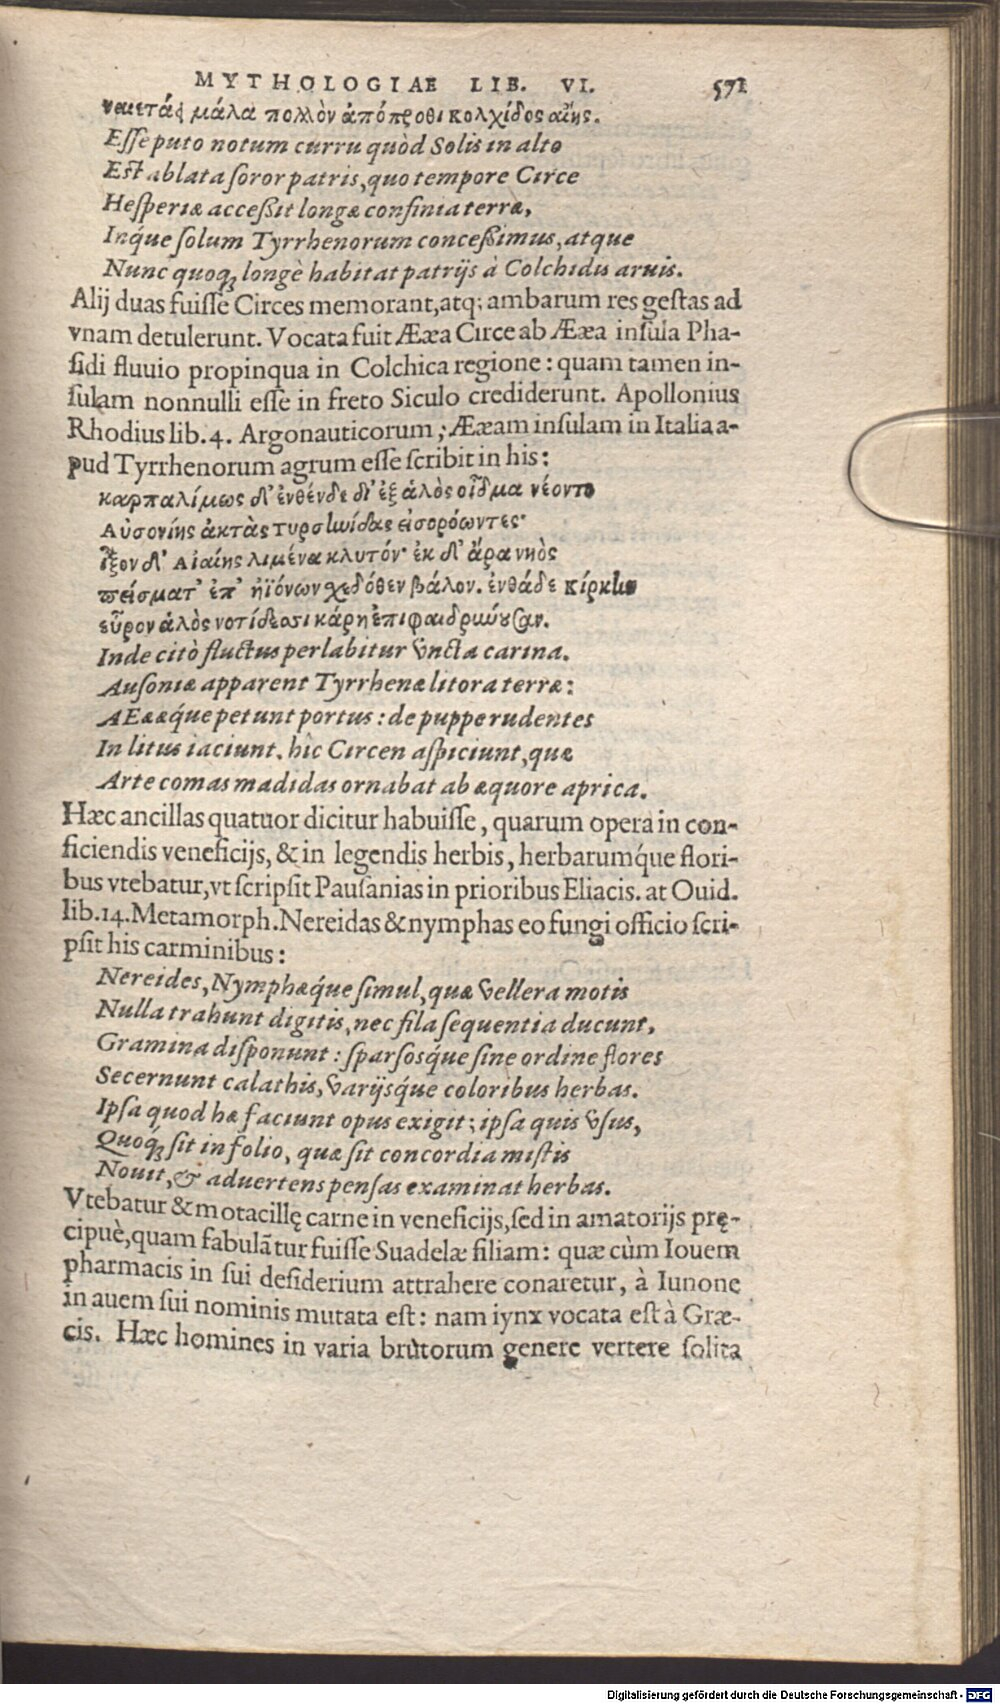 MYTHOLOGIAE LIB. VI. 571
ναιετάει μάλα πολλὸν ἀπόπροθι κολχίδος αἴης.
Esse puto notum curru quòd Solis in alto
Est ablata soror patris, quo tempore Circe
Hesperiæ acceßit longæ confinia terræ,
Inq́ue solum Tyrrhenorum conceßimus, atque
Nunc quoq; longè habitat patrijs à Colchidis aruis.
Alij duas fuisse Circes memorant, atq; ambarum res gestas ad
vnam detulerunt. Vocata fuit Ææa Circe ab Ææa insula Pha-
sidi fluuio propinqua in Colchica regione: quam tamen in-
sulam nonnulli esse in freto Siculo crediderunt. Apollonius
Rhodius lib. 4. Argonauticorum; Ææam insulam in Italia a-
pud Tyrrhenorum agrum esse scribit in his:
καρπαλίμως δ' ἐνθένδε δι' ἐξ ἁλὸς οἶδμα νέοντο
Αὐσονίης ἀκτὰς τυρσηνίδας εἰσορόωντες·
ἷξον δ' Αἰαίης λιμένα κλυτόν· ἐκ δ' ἄρα νηὸς
πείσματ' ἐπ' ἠϊόνων χεδόθεν βάλον. ἐνθάδε κίρκην
εὗρον ἁλὸς νοτίδεσσι κάρη ἐπιφαιδρύνουσαν.
Inde citò fluctus perlabitur vncta carina.
Ausoniæ apparent Tyrrhenæ litora terræ:
AEæǽque petunt portus: de puppe rudentes
In litus iaciunt. hîc Circen aspiciunt, quæ
Arte comas madidas ornabat ab æquore aprica.
Hæc ancillas quatuor dicitur habuisse, quarum opera in con-
ficiendis veneficijs, & in legendis herbis, herbarumq́ue flori-
bus vtebatur, vt scripsit Pausanias in prioribus Eliacis. at Ouid.
lib. 14. Metamorph. Nereidas & nymphas eo fungi officio scri-
psit his carminibus:
Nereides, Nymphæq́ue simul, quæ vellera motis
Nulla trahunt digitis, nec fila sequentia ducunt,
Gramina disponunt: sparsosq́ue sine ordine flores
Secernunt calathis, varijsq́ue coloribus herbas.
Ipsa quod hæ faciunt opus exigit; ipsa quis vsus,
Quoq́; sit in folio, quæ sit concordia mistis
Nouit, & aduertens pensas examinat herbas.
Vtebatur & motacillę carne in veneficijs, sed in amatorijs prę-
cipuè, quam fabulātur fuisse Suadelæ filiam: quæ cùm Iouem
pharmacis in sui desiderium attrahere conaretur, à Iunone
in auem sui nominis mutata est: nam iynx vocata est à Græ-
cis. Hæc homines in varia brutorum genere vertere solita
Digitalisierung gefördert durch die Deutsche Forschungsgemeinschaft - DFG